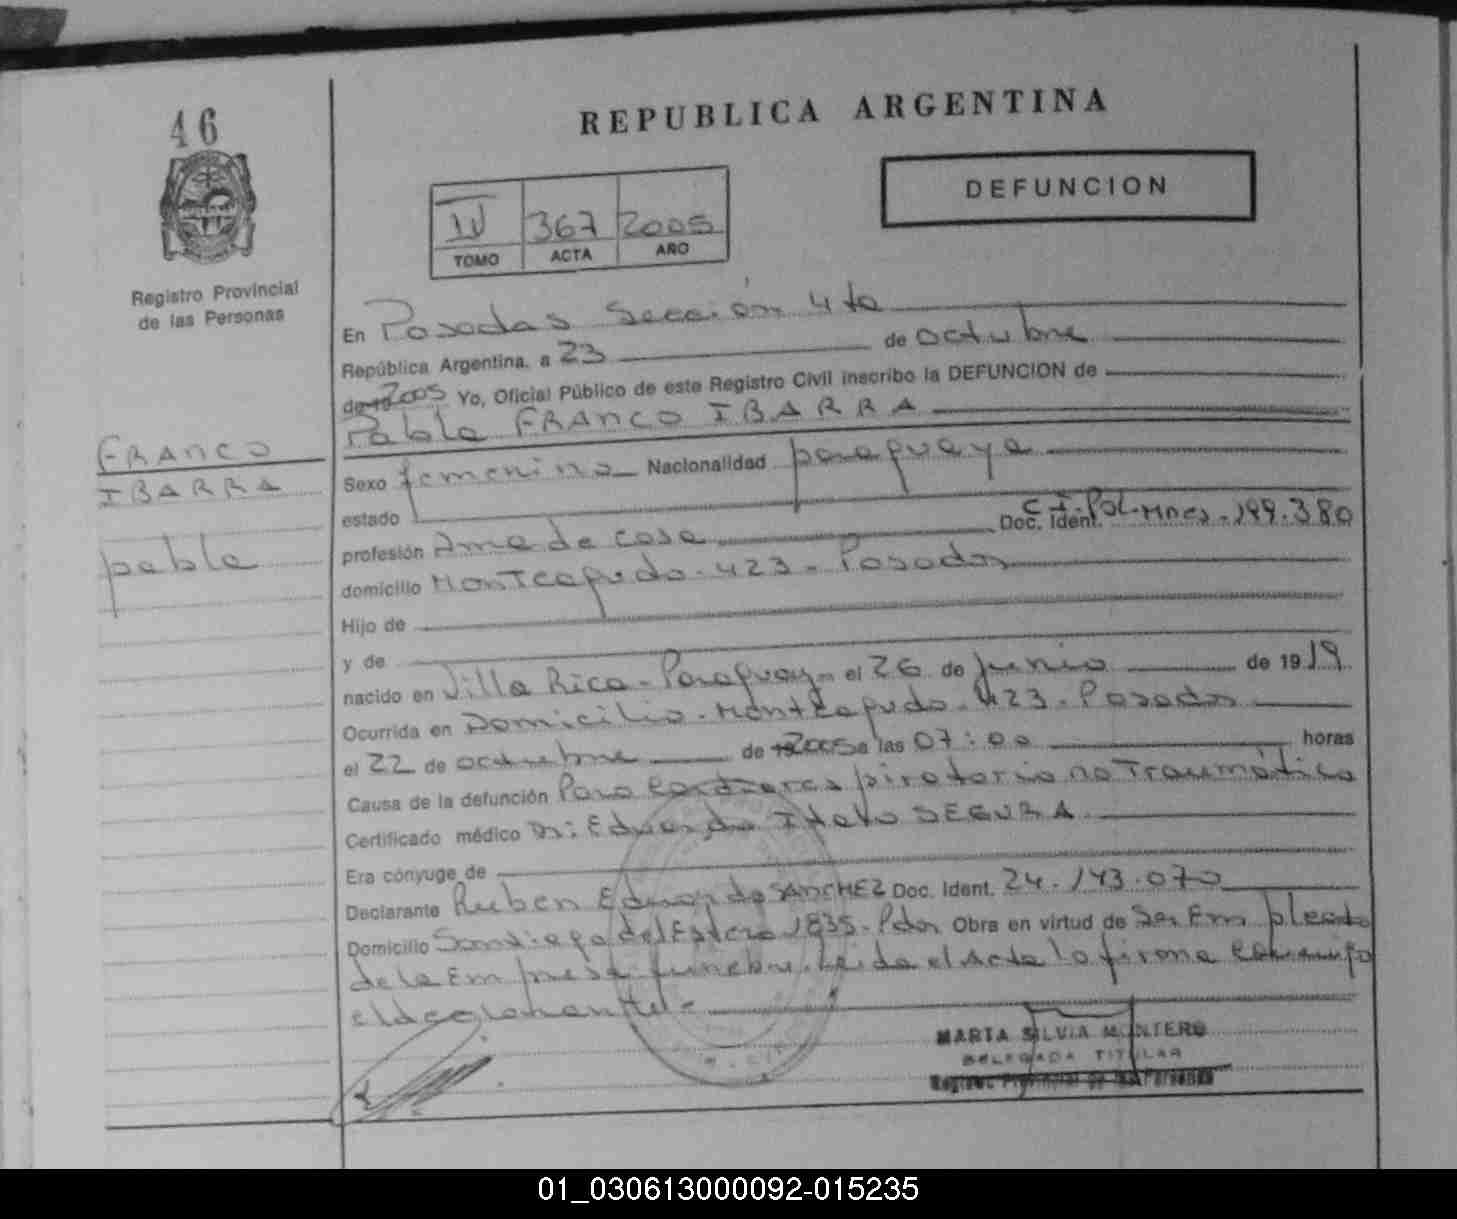 46
REPUBLICA ARGENTINA
DEFUNCION
IV 367 2005
TOMO ACTA AÑO
Registro Provincial
de las Personas
En Posadas Sección 4ta
República Argentina, a 23 de octubre
de 2005 Yo, Oficial Público de este Registro Civil inscribo la DEFUNCION de
Pabla FRANCO IBARRA
FRANCO
IBARRA
pabla
Sexo femenino Nacionalidad paraguaya
estado
Doc. Ident. C.I. Pol. Mnes. 199.380
profesión Ama de casa
domicilio Monteagudo 423 - Posadas
Hijo de
y de
nacido en Villa Rica - Paraguay el 26 de junio de 1919
Ocurrida en Domicilio - Monteagudo - 423 - Posadas
el 22 de octubre de 2005 a las 07:00 horas
Causa de la defunción Paro Cardiorespiratorio no Traumático
Certificado médico Dr: Eduardo Italo SEGURA
Era cónyuge de
Declarante Ruben Eduardo SANCHEZ Doc. Ident. 24.143.070
Domicilio Santiago del Estero 1835 - Pdas Obra en virtud de Ser Empleado
de la Empresa funebre. Leida el Acta la firma conmigo
el declarante.-
MARTA SILVIA MONTERO
DELEGADA TITULAR
Registro Provincial de las Personas
01_030613000092-015235